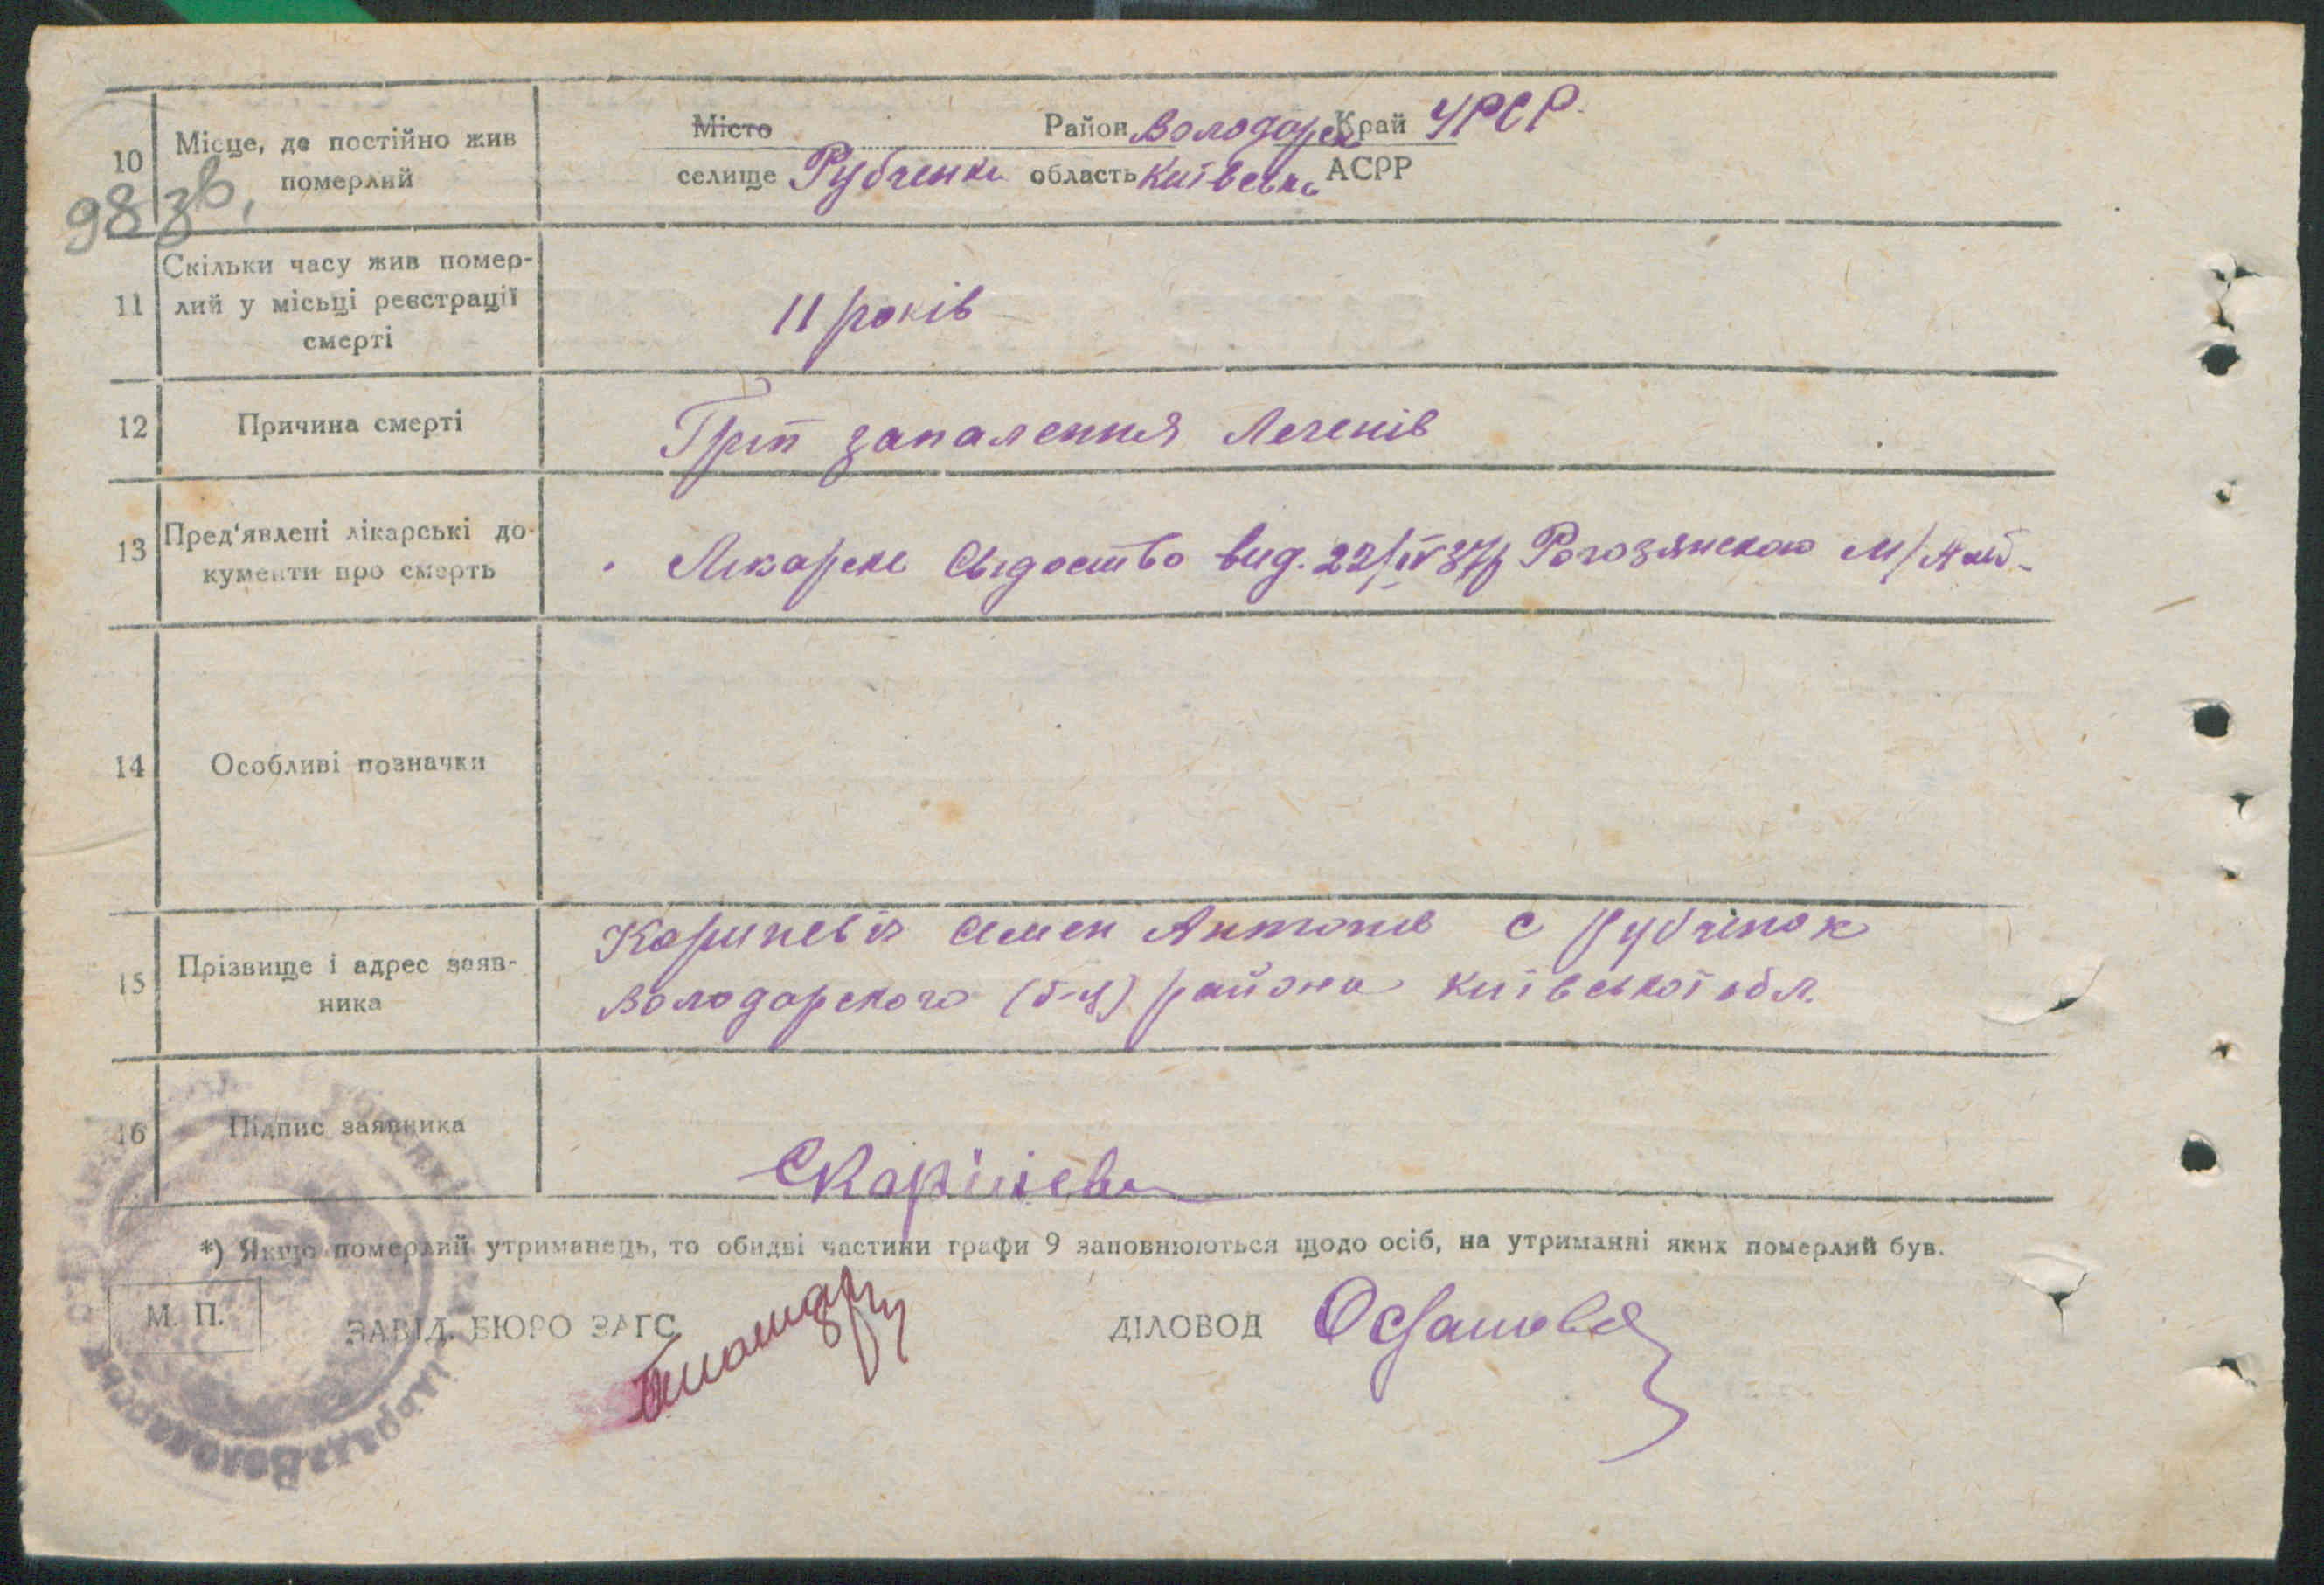 10 Місце, де постійно жив померлий
Місто Район Володарск Край УРСР.
селище Рубченки область Київська АСРР
98 зв.
11 Скільки часу жив помер-
лий у місьці реєстрації
смерті
11 років
12 Причина смерті
Грип запалення Легенів
13 Пред'явлені лікарські до-
кументи про смерть
Лікарске Свідоство вид. 22/IV 37р Рогозянскою М/
14 Особливі позначки
15 Прізвище і адрес заяв-
ника
Семен Антонів с Рубчінок
Володарского (б-ц) района Київської обл.
16 Підпис заявника
*) Якщо померлий утриманець, то обидві частини графи 9 заповнюються щодо осіб, на утриманні яких померлий був.
М. П.
ЗАВІД. БЮРО ЗАГС
ДІЛОВОД